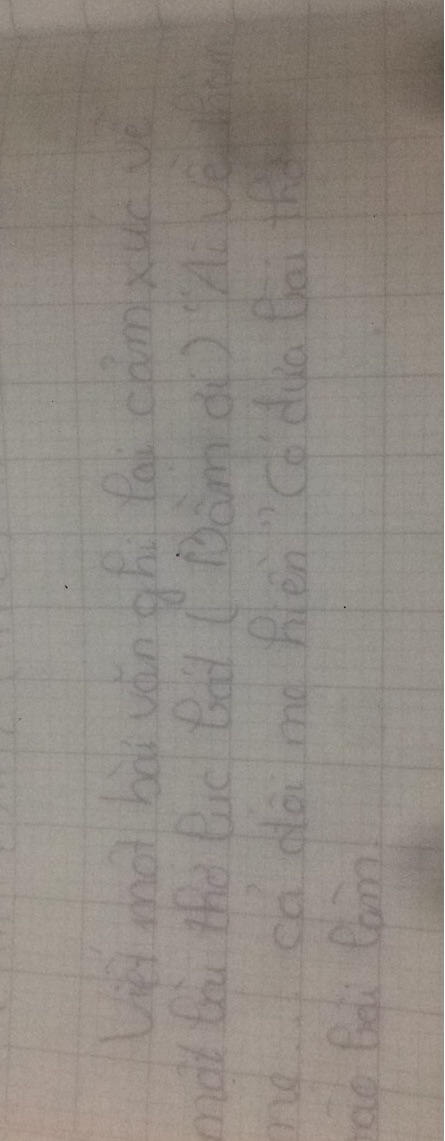 Viết một bài văn ghi lại cảm xúc về
một bài thơ lục bát (Bầm ơi) "Ai về thăm
mẹ ... cả đời mẹ hiền" Có đưa bài thơ
vào bài làm.